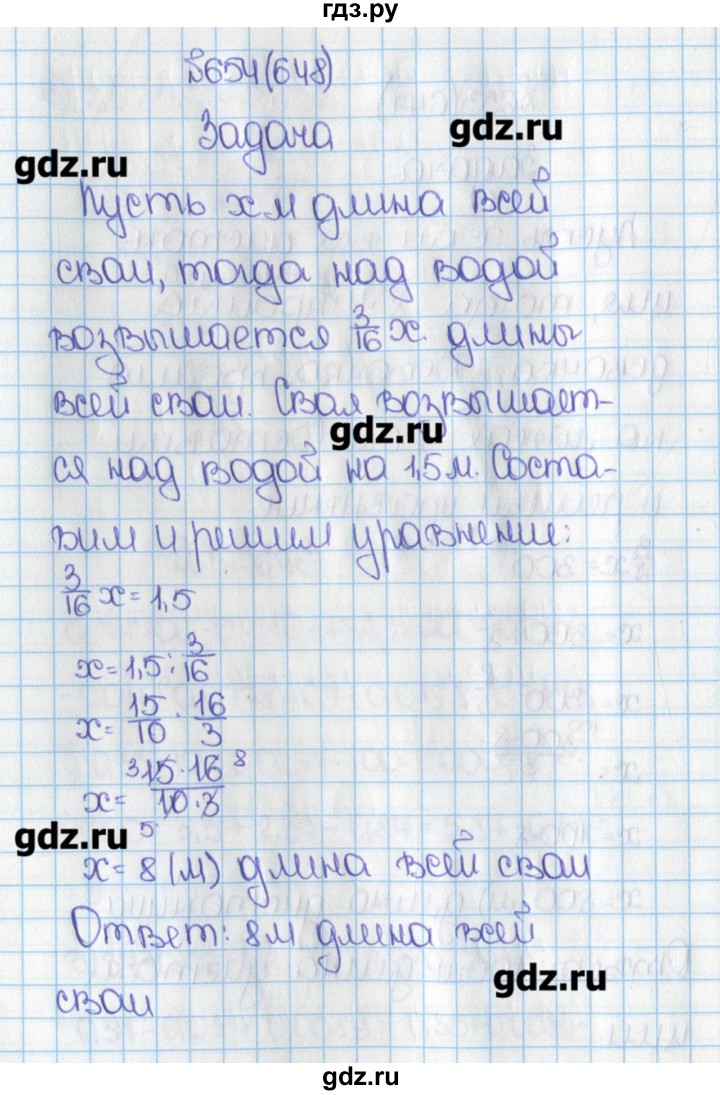 гдз.ру
№654(648)
Задача
gdz.ru
gdz.ru
Пусть x м длина всей
сваи, тогда над водой
возвышается 3/16 x. длины
всей сваи. Свая возвышает-
gdz.ru
ся над водой на 1,5 м. Соста-
вим и решим уравнение:
3/16 x = 1,5
x = 1,5 : 3/16
x = 15/10 · 16/3
x = 3 15·16 8 / 10·3 5
gdz.ru
x = 8 (м) длина всей сваи
Ответ: 8 м длина всей
gdz.ru
сваи
gdz.ru